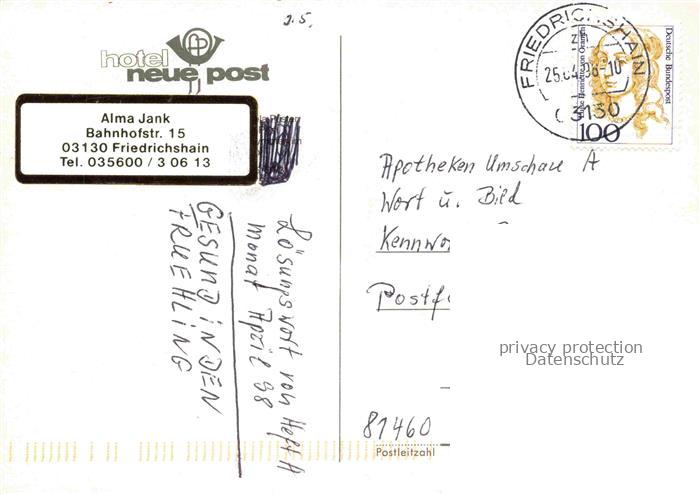 2.5.
hotel
neue post
Alma Jank
Bahnhofstr. 15
03130 Friedrichshain
Tel. 035600 / 3 06 13
Lösungswort von Heft A
Monat April 98
GESUND IN DEN
FRUEHLING
FRIEDRICHSHAIN
25.04.98-10
03130
Deutsche Bundespost
100
Apotheken Umschau A
Wort u. Bild
Kennwo
Postf
privacy protection
Datenschutz
81460
Postleitzahl